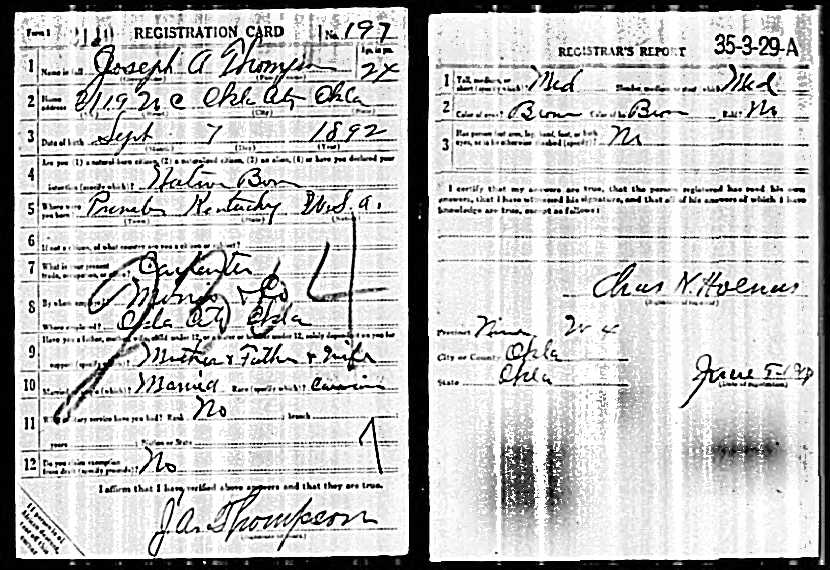 Form 1 REGISTRATION CARD No. 197
1 Name in full Joseph A Thompson Age, in yrs. 24
2 Home address 2119 N C Okla City Okla
3 Date of birth Sept 7 1892
(Month) (Day) (Year)
4 Are you (1) a natural-born citizen, (2) a naturalized citizen, (3) an alien, (4) or have you declared your
intention (specify which)?
5 Where were you born? Kentucky U.S.A.
6 If not a citizen, of what country are you a citizen or subject?
7 What is your present trade, occupation, or office? Carpenter
8 By whom employed? & Co
Where employed? Okla City Okla
9 Have you a father, mother, wife, child under 12, or a sister or brother under 12, solely dependent on you for
support (specify which)? Mother & Father & Wife
10 Married or single (which)? Married Race (specify which)?
11 What military service have you had? Rank No branch
years Nation or State
12 Do you claim exemption from draft (specify grounds)? No
I affirm that I have verified above answers and that they are true.
J. A. Thompson
REGISTRAR'S REPORT 35-3-29-A
1 Tall, medium, or short (specify which)? Med Slender, medium, or stout (which)? Med
2 Color of eyes? Brown Color of hair? Brown Bald? No
3 Has person lost arm, leg, hand, foot, or both eyes, or is he otherwise disabled (specify)? No
I certify that my answers are true, that the person registered has read his own
answers, that I have witnessed his signature, and that all of his answers of which I have
knowledge are true, except as follows:
Chas N.
Precinct Nine W 4
City or County Okla
State Okla
June 5-1917
(Date of registration)